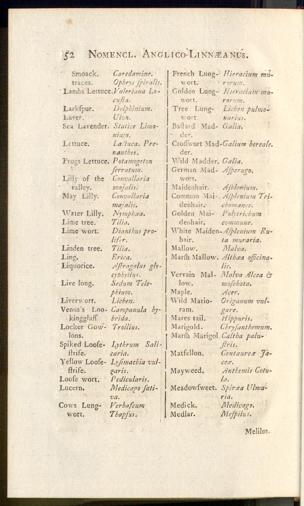 52 NOMENCL. ANGLICO-LINNÆANUS.
Smoack. Cardamine.
traces. Ophrys spiralis.
Lambs Lettuce. Valeriana Lo-
custa.
Larkspur. Delphinium.
Laver. Ulva.
Sea Lavender. Statice Limo-
nium.
Lettuce. Lactuca. Pre-
nanthes.
Frogs Lettuce. Potamogeton
serratum.
Lilly of the Convallaria
valley. majalis.
May Lilly. Convallaria
majalis.
Water Lilly. Nymphæa.
Lime tree. Tilia.
Lime wort. Dianthus pro-
lifer.
Linden tree. Tilia.
Ling. Erica.
Liquorice. Astragalus gly-
cyphyllus.
Live long. Sedum Tele-
phium.
Liverwort. Lichen.
Venus's Loo- Campanula hy-
kingglass. brida.
Locker Gow- Trollius.
lons.
Spiked Loose- Lythrum Sali-
strife. caria.
Yellow Loose- Lysimachia vul-
strife. garis.
Loose wort. Pedicularis.
Lucern. Medicago sati-
va.
Cows Lung- Verbascum
wort. Thapsus.
French Lung- Hieracium mu-
wort. rorum.
Golden Lung- Hieracium mu-
wort. rorum.
Tree Lung- Lichen pulmo-
wort. narius.
Bastard Mad- Galia.
der.
Crosswort Mad- Galium boreale.
der.
Wild Madder. Galia.
German Mad- Asperugo.
wort.
Maidenhair. Asplenium.
Common Mai- Asplenium Tri-
denhair. chomanes.
Golden Mai- Polytrichum
denhair. commune.
White Maiden- Asplenium Ru-
hair. ta muraria.
Mallow. Malva.
Marsh Mallow. Althæa officina-
lis.
Vervain Mal- Malva Alcea &
low. moschata.
Maple. Acer.
Wild Marjo- Origanum vul-
ram. gare.
Mares tail. Hippuris.
Marigold. Chrysanthemum.
Marsh Marigol. Caltha palu-
stris.
Matfellon. Centaurea Ja-
cea.
Mayweed. Anthemis Cotu-
la.
Meadowsweet. Spiræa Ulma-
ria.
Medick. Medicago.
Medlar. Mespilus.
Melilot.